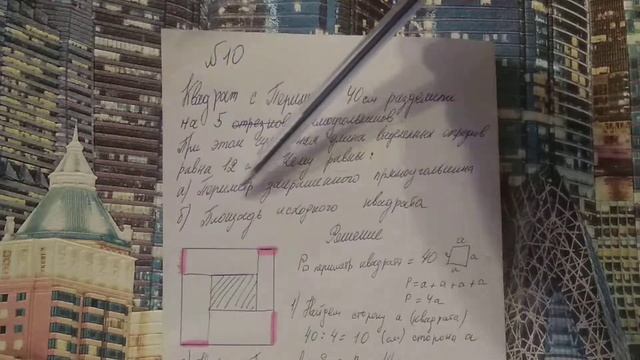 №10
Квадрат с Перим 40см разделили
на 5 отрезков моугольников
При этом сум ная длина выделенных отрезков
равна 12 Чему равны:
а) Периметр закрашенного прямоугольника
б) Площадь исходного квадрата
Решение
P периметр квадрата = 40
a
a
a
P=a+a+a+a
P=4a
1) Найдем сторону a (квадрата)
40:4=10 (см) сторона a